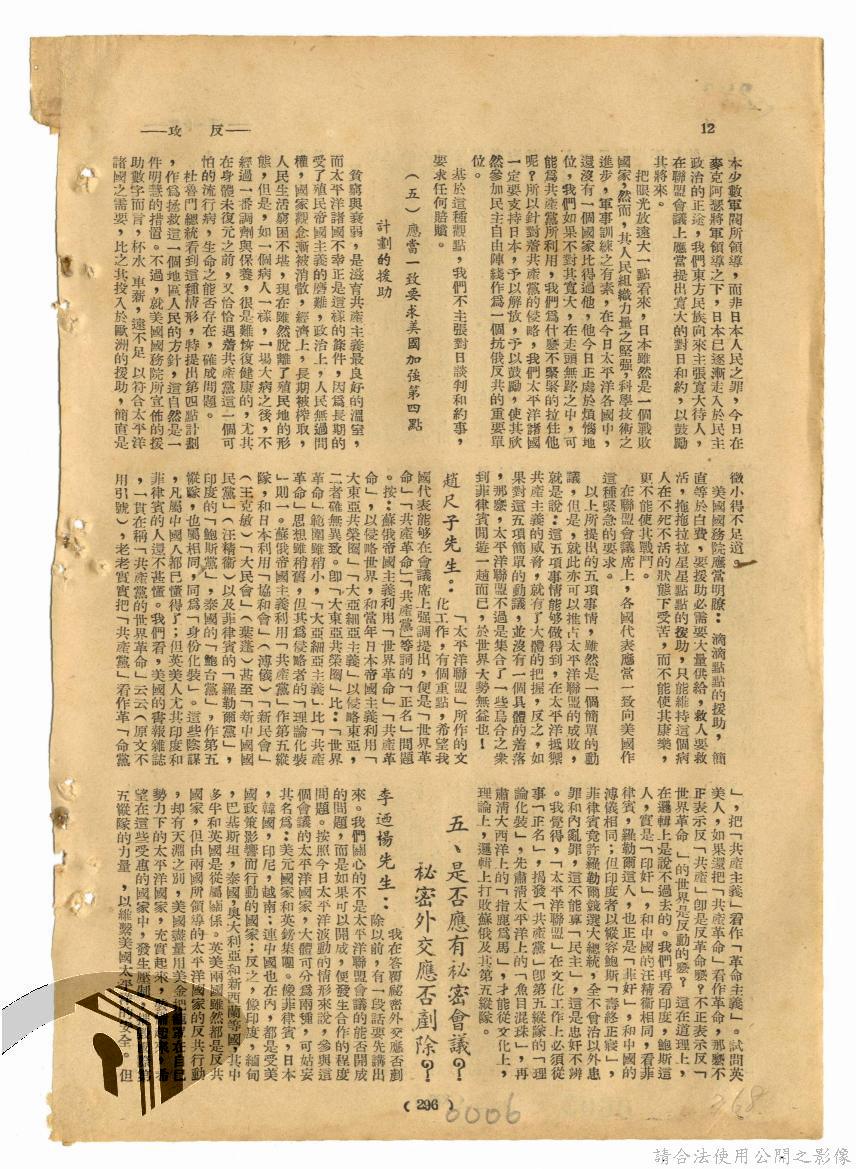 12
反攻
本少數軍閥所領導,而非日本人民之罪,今日在
麥克阿瑟將軍領導之下,日本已逐漸走入於民主
政治的正途,我們東方民族向來主張寬大待人,
在聯盟會議上應當提出寬大的對日和約,以鼓勵
其將來。
把眼光放遠大一點看來,日本雖然是一個戰敗
國家,然而,其人民組織力量之堅强,科學技術之
進步,軍事訓練之有素,在今日太平洋各國中,
還沒有一個國家比得過他,他今日正處於煩惱地
位,我們如果不對其寬大,在走頭無路之中,可
能爲共產黨所利用,我們爲什麼不緊緊的拉住他
呢?所以針對着共產黨的侵略,我們太平洋諸國
一定要支持日本,予以解放,予以鼓勵,使其欣
然參加民主自由陣綫作爲一個抗俄反共的重要單
位。
基於這種觀點,我們不主張對日談判和約事,
要求任何賠贖。
(五)應當一致要求美國加強第四點
計劃的援助
貧窮與衰弱,是滋育共產主義最良好的溫室,
而太平洋諸國不幸正是這樣的條件,因爲長期的
受了殖民帝國主義的磨難,政治上,人民無過問
權,國家觀念漸被消散,經濟上,長期被榨取,
人民生活窮困不堪,現在雖然脫離了殖民地的形
態,但是,如一個病人一樣,一場大病之後,不
經過一番調劑與保養,很是難恢復健康的,尤其
在身體未復元之前,又恰恰遇着共產黨這一個可
怕的流行病,生命之能否存在,確成問題。
杜魯門總統看到這種情形,特提出第四點計劃
,作爲拯救這一個地區人民的方針,這自然是一
件明慧的措置。不過,就美國國務院所宣佈的援
助數字而言,杯水車薪,遠不足以符合太平洋
諸國之需要,比之其投入於歐洲的援助,簡直是
微小得不足道。
美國國務院應當明瞭:滴滴點點的援助,簡
直等於白費,要援助必需要大量供給,救人要救
活,拖拖拉拉星星點點的援助,只能維持這個病
人在不死不活的狀態下受苦,而不能使其康樂,
更不能使其戰鬥。
在聯盟會議席上,各國代表應當一致向美國作
這種緊急的要求。
以上所提出的五項事情,雖然是一個簡單的動
議,但是,就此亦可以推占太平洋聯盟的成敗,
就是說:這五項事情能够做得到,在太平洋抵禦
共產主義的威脅,就有了大體的把握,反之,如
果對這五項簡單的動議,並沒有一個具體的着落
,那麼,太平洋聯盟不過是集合了一些烏合之衆
到菲律賓閒遊一趟而已,於世界大勢無益也!
趙尺子先生:「太平洋聯盟」所作的文
化工作,有個重點,希望我
國代表能够在會議席上强調提出,便是「世界革
命」「共產革命」「共產黨」等詞的「正名」問題
。按:蘇俄帝國主義利用「世界革命」「共產革
命」,以侵略世界,和當年日本帝國主義利用「
大東亞共榮圈」「大亞細亞主義」以侵略東亞,
二者確無異致。卽「大東亞共榮圈」比:「世界
革命」範圍雖稍小,「大亞細亞主義」比「共產
革命」思想雖稍舊,但其爲侵略者的「理論化裝
」則一。蘇俄帝國主義利用「共產黨」作第五縱
隊,和日本利用「協和會」(溥儀)「新民會」
(王克敏)「大民會」(葉蓬)甚至「新中國國
民黨」(汪精衞)以及菲律賓的「羅勒爾黨」,
印度的「鮑斯黨」,泰國的「鮑台黨」,作第五
縱隊,也屬相同,同爲「身份化裝」。這些陰謀
,凡屬中國人都已懂得了;但英美人尤其印度和
菲律賓的人還不甚懂。我們看,美國的書報雜誌
,一貫在稱「共產黨的世界革命」云云(原文不
用引號),老老實實把「共產黨」看作革「命黨
」,把「共產主義」看作「革命主義」。試問英
美人,如果還把「共產革命」看作革命,那麼不
正表示反「共產」卽是反革命麼?不正表示反「
世界革命」的世界是反動的麼?這在道理上,
在邏輯上是說不過去的。我們再看印度,鮑斯這
人,實是「印奸」,和中國的汪精衞相同,看菲
律賓,羅勒爾這人,也正是「菲奸」,和中國的
溥儀相同;但印度者以縱容鮑斯「壽終正寢」,
菲律賓竟許羅勒爾競選大總統,全不曾治以外患
罪和內亂罪,這不能算「民主」,這是忠奸不辨
。我覺得,「太平洋聯盟」在文化工作上必須從
事「正名」,揭發「共產黨」卽第五縱隊的「理
論化裝」,先肅清太平洋上的「魚目混珠」,再
肅清大西洋上的「指鹿爲馬」,才能從文化上,
理論上,邏輯上打敗蘇俄及其第五縱隊。
五、是否應有秘密會議?
秘密外交應否剷除?
李迺揚先生:我在答覆祕密外交應否剷
除以前,有一段話要先講出
來。我們關心的不是太平洋聯盟會議的能否開成
的問題,而是如果可以開成,便發生合作的程度
問題。按照今日太平洋波動的情形來說,參與這
個會議的太平洋國家,大體可分爲兩種,可姑妄
其名爲:美元國家和英鎊集團。像菲律賓,日本
,韓國,印尼,越南;連中國也在內,都是受美
國政策影響而行動的國家;反之,像印度,緬甸
,巴基斯坦,泰國,奧大利亞和新西蘭等國,其中
多半和英國是從屬關係。英美兩國雖然都是反共
國家,但由兩國所領導的太平洋國家的反共行動
,却有天淵之別,美國盡量用美金把 在自己
勢力下的太平洋國家,充實起來,
望在這些受惠的國家中,發生壓制
五縱隊的力量,以維繫美國太平洋的安全。但
(296)
0006
268
請合法使用公開之影像